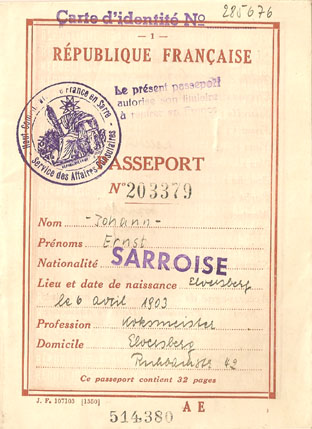 Carte d'identité No 285676
— 1 —
RÉPUBLIQUE FRANÇAISE
Le présent passeport
autorise son titulaire
à rentrer en France
en Sarre
Service des Affaires
PASSEPORT
N° 203379
Nom Johann
Prénoms Ernst
Nationalité SARROISE
Lieu et date de naissance Elversberg
le 6 avril 1903
Profession Koksmeister
Domicile Elversberg
42
Ce passeport contient 32 pages
J. F. 107103 [1350]
A E
514380